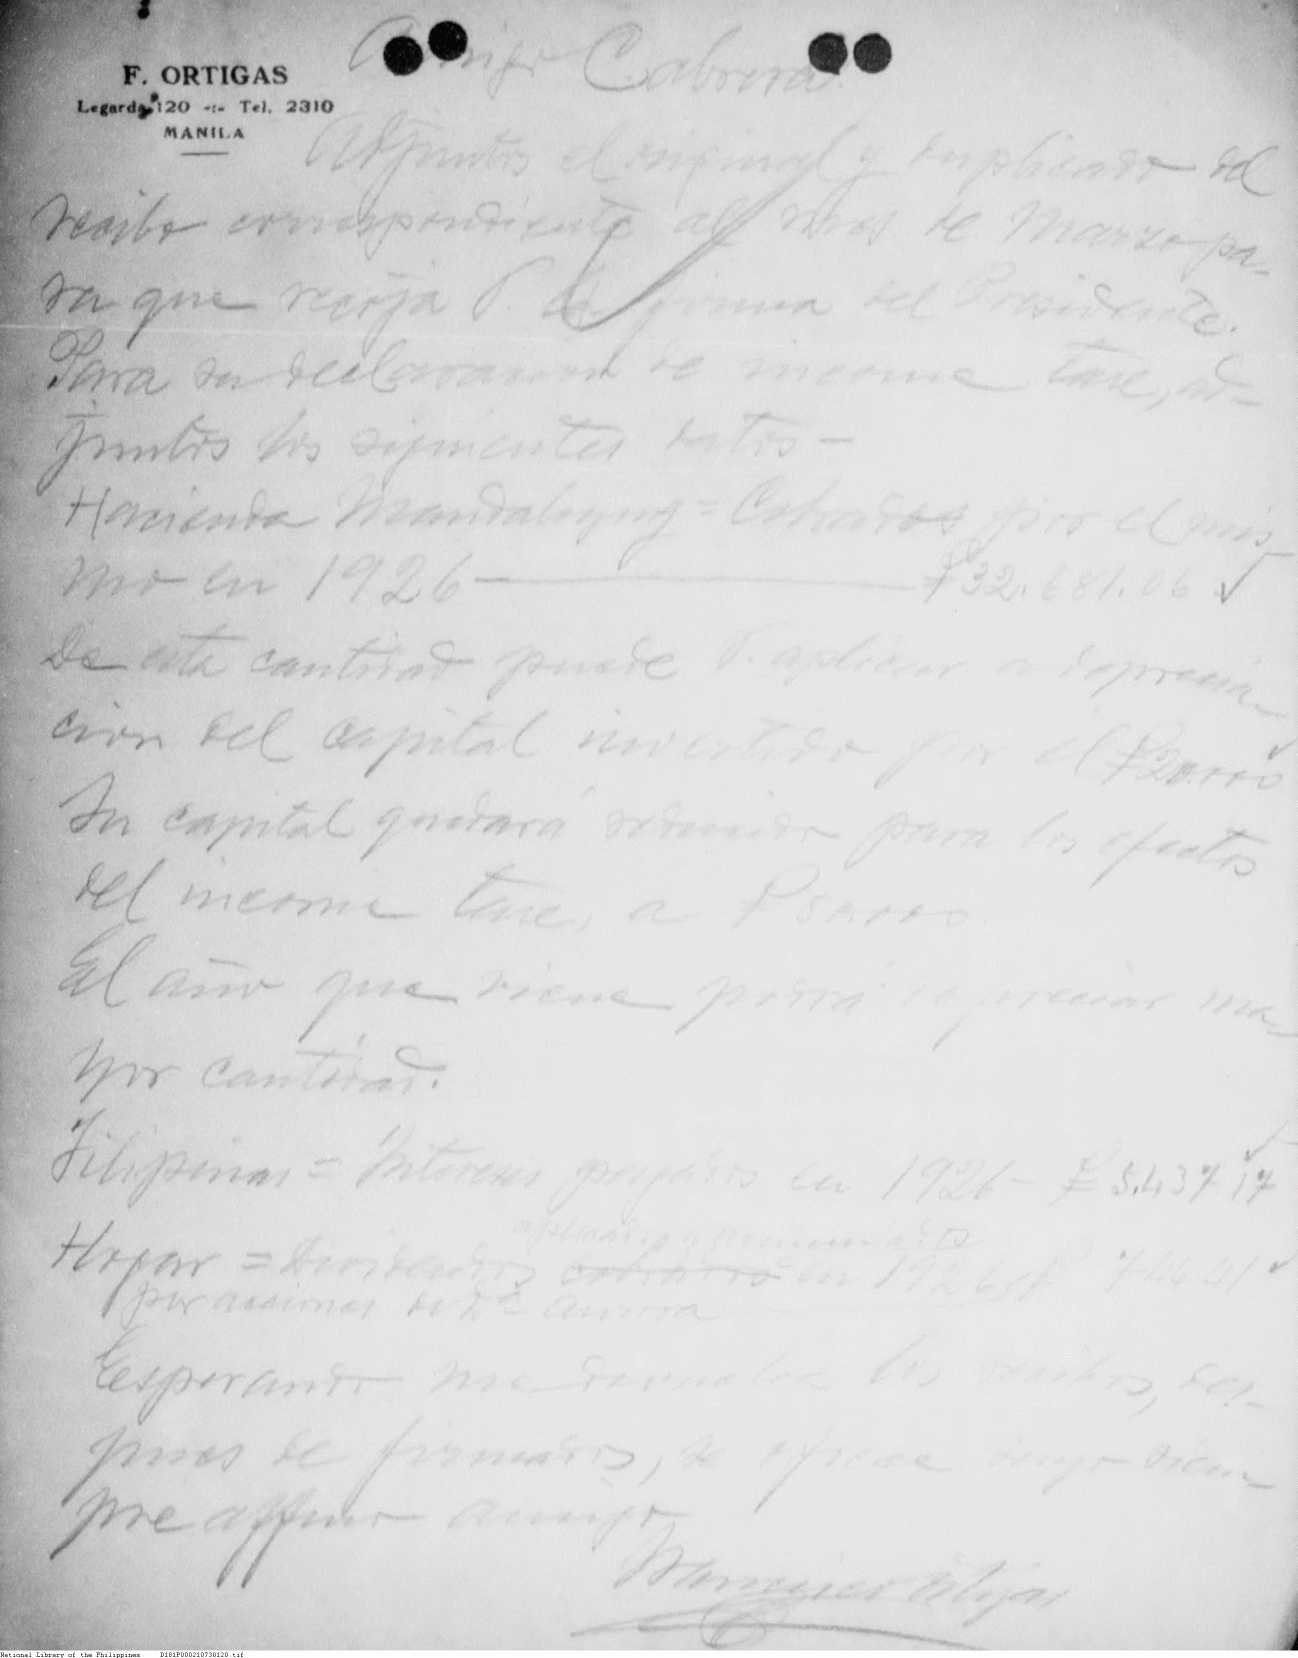 Amigo Cabrera:
F. ORTIGAS
Legarda 120 -:- Tel. 2310
MANILA
Adjuntos el original y duplicado del
recibo correspondiente al mes de Marzo pa-
ra que recoja V. la firma del Presidente.
Para su declaracion de income taxe, ad-
juntos los siguientes datos -
Hacienda Mandaloyng = Cobrados por el mis-
mo en 1926 — ₱32.681.06 ✓
De esta cantidad puede V. aplicar a deprecia-
cion del capital invertido por el
Su capital quedará reducido para los efectos
del income taxe, a
El año que viene podrá depreciar ma-
yor cantidad.
Filipinas = Intereses pagados en 1926 - ₱ 5.437 17
Hogar = Dividendos cobrados en 1926
por acciones de Dª Aurora
Esperando me devuelva los recibos, des-
pues de firmados, se ofrece suyo siem-
pre affmo amigo